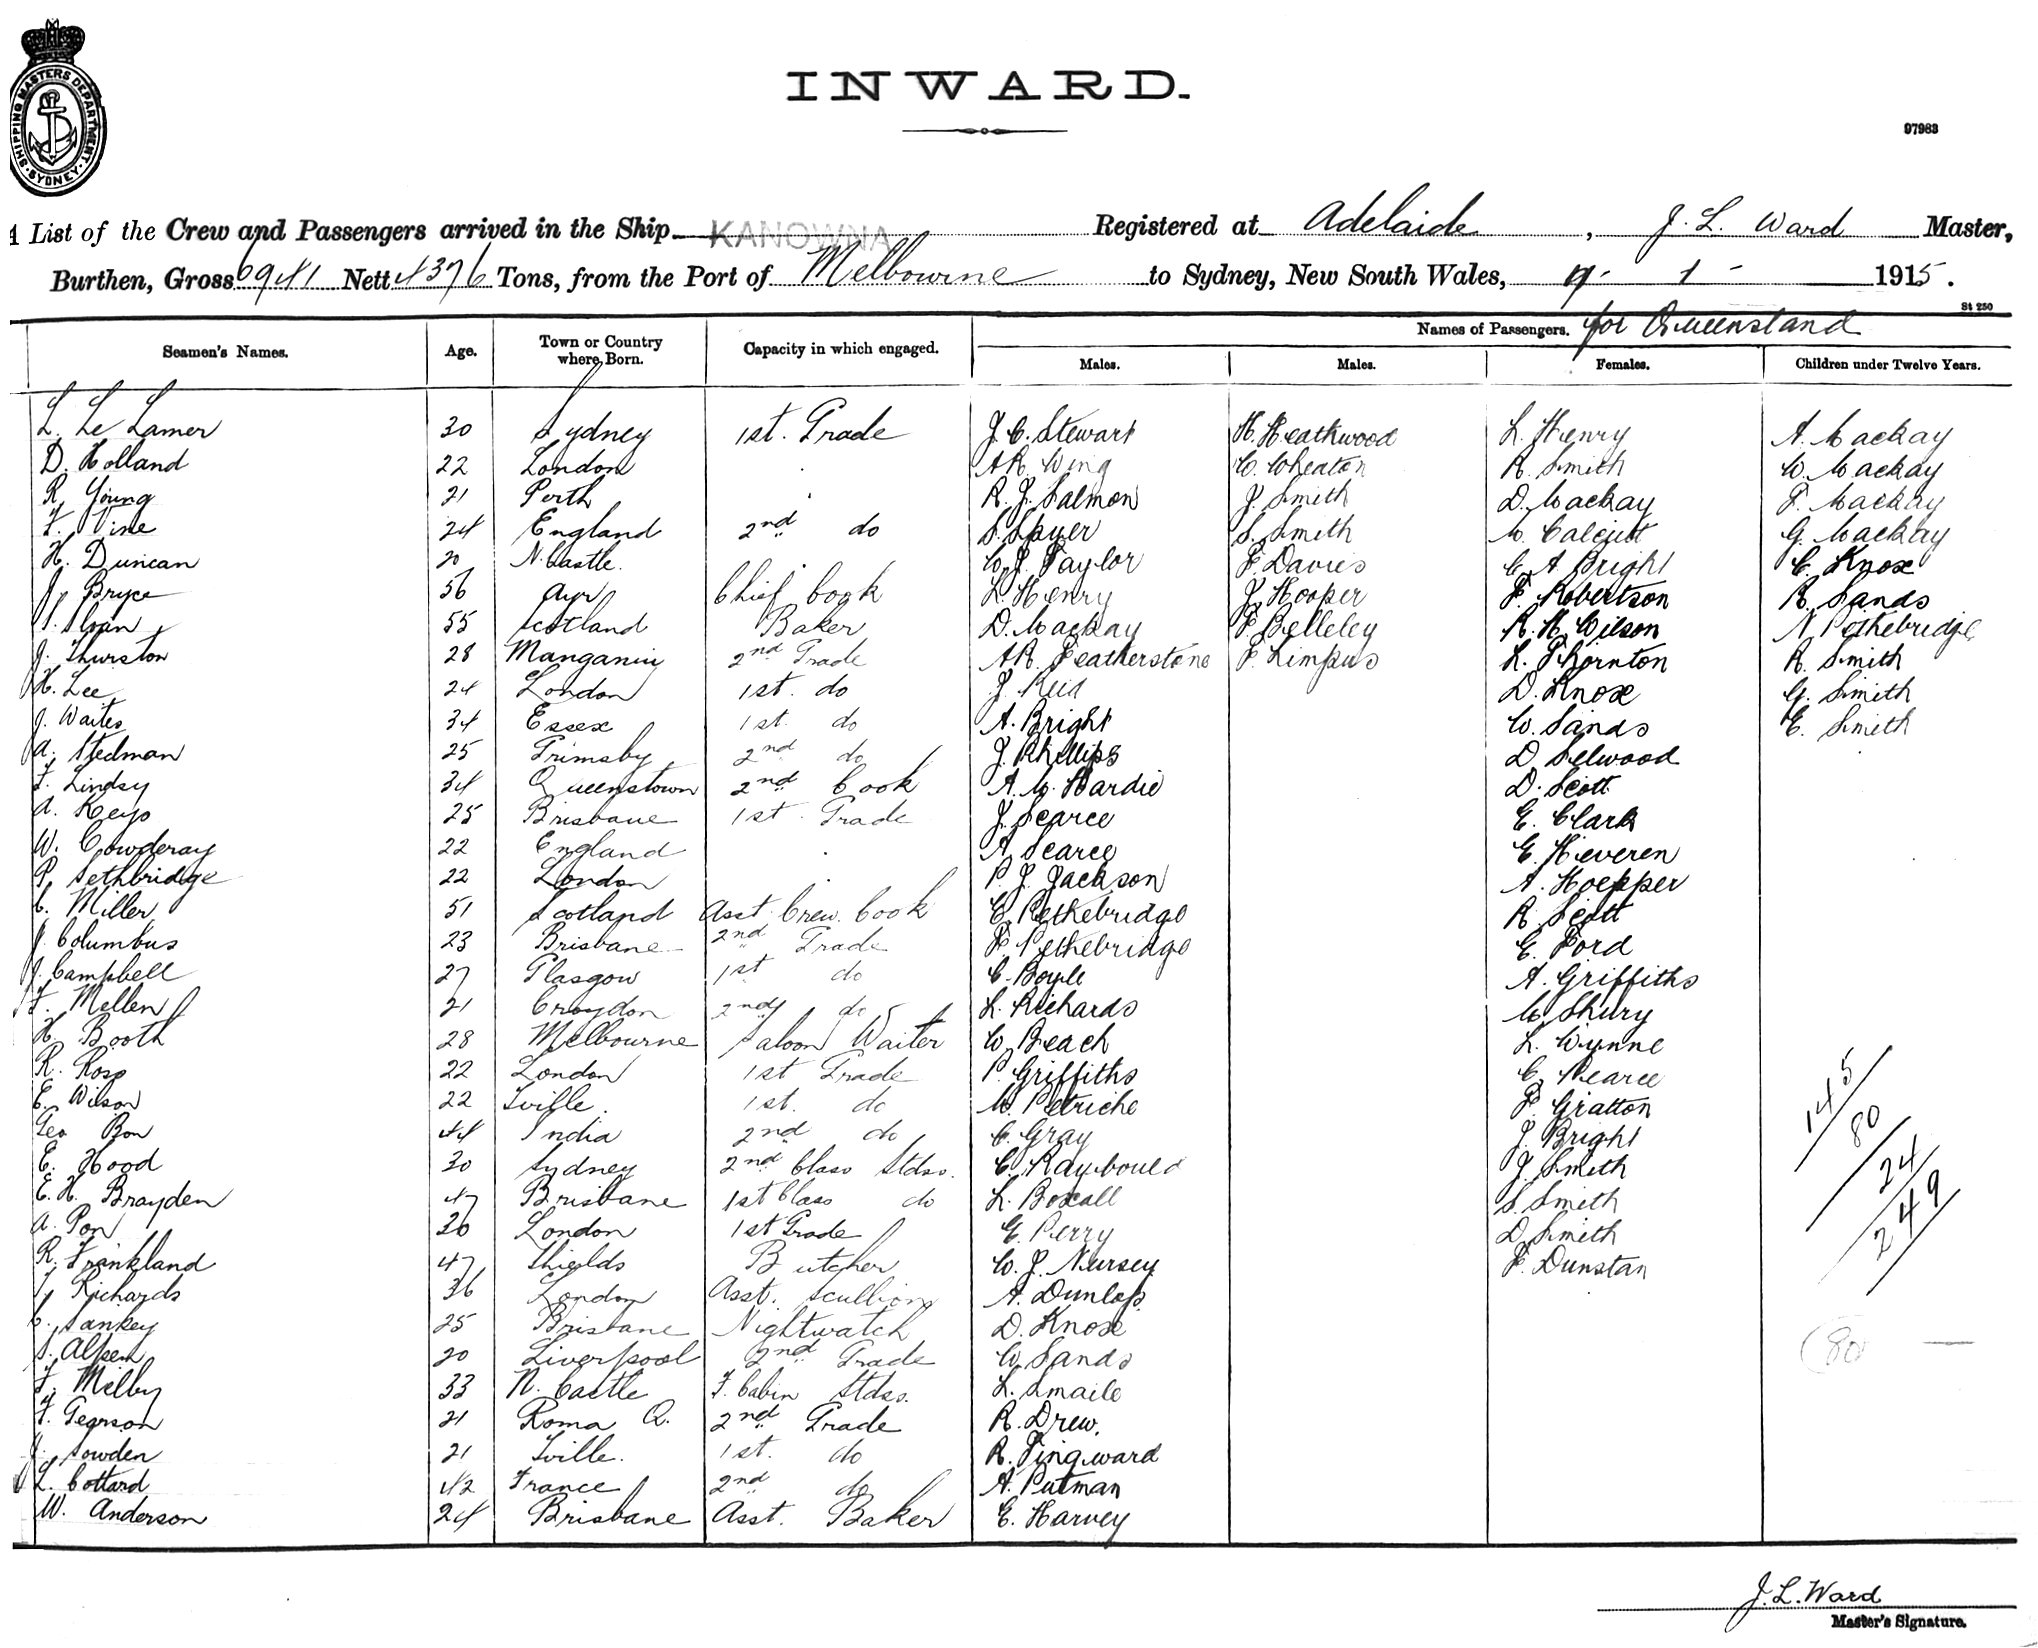 INWARD.
SHIPPING MASTERS DEPARTMENT. SYDNEY.
97983
List of the Crew and Passengers arrived in the Ship KANOWNA Registered at Adelaide, J. L. Ward Master,
Burthen, Gross 6941 Nett 4376 Tons, from the Port of Melbourne to Sydney, New South Wales, 1915.
St 250
Names of Passengers. for Queensland
Seamen's Names. Age. Town or Country where Born. Capacity in which engaged. Males. Males. Females. Children under Twelve Years.
L. Le Lamer 30 Sydney 1st. Grade J. C. Stewart H. Heathwood L. Henry A. Mackay
D. Holland 22 London AR. Wing C. Wheaton R. Smith W. Mackay
R. Young 21 Perth R. J. Salmon J. Smith D. Mackay F. Mackay
F. Vine 24 England 2nd do S. Spyer S. Smith M. Calcutt G. Mackay
H. Duncan 20 N. Castle. W. J. Taylor F. Davies C. A. Bright C. Knox
J. Bryce 56 Ayr Chief Cook L. Henry J. Hooper F. Robertson R. Sands
55 Scotland Baker D. Mackay F. Belleley R. H. Wilson N. Pethebridge
J. Thurston 28 2nd Grade AR. Featherstone F. Limpus L. Thornton R. Smith
H. Lee 24 London 1st. do J. Reid D. Knox G. Smith
J. Waites 34 Essex 1st. do A. Bright W. Sands E. Smith
A. Stedman 25 Grimsby 2nd do J. Phillips D. Selwood
F. Lindsy 34 Queenstown 2nd Cook A. M. Hardie D. Scott
A. Keys 25 Brisbane 1st Grade J. Scarce E. Clark
W. Cowderay 22 England A. Scarce E. Heveren
P. Sethbridge 22 London P. J. Jackson A. Hoepper
C. Miller 51 Scotland Asst. Crew. Cook E. Pethebridge R. Scott
J. Columbus 23 Brisbane 2nd Grade F. Pethebridge E. Ford
J. Campbell 27 Glasgow 1st do C. Boyle A. Griffiths
F. Mellen 21 Croydon 2nd do L. Richards M. Shury
H. Booth 28 Melbourne Saloon Waiter W. Beach L. Wynne
R. Ross 22 London 1st Grade P. Griffiths C. Pearce
E. Wilson 22 Tville. 1st. do M. Petriche F. Gratton
Geo Bon 44 India 2nd do C. Gray J. Bright
E. Hood 30 Sydney 2nd Class Stdss. C. Raybould J. Smith
E. H. Brayden 47 Brisbane 1st Class do L. Boxall S. Smith
A. Pon 30 London 1st Grade E. Perry D. Smith
R. Frankland 47 Shields Butcher W. J. Nursey F. Dunstan
Richards 36 London Asst. Scullion A. Dunlop
C. Sankey 25 Brisbane Nightwatch D. Knox
20 Liverpool 2nd Grade W. Sands
F. Melby 33 N. Castle F. Cabin Stdss. L. Smaile
F. Pearson 21 Roma Q. 2nd Grade R. Drew.
J. Sowden 21 Tville. 1st. do R. Pingward
L. Cottard 42 France 2nd do A. Putman
W. Anderson 24 Brisbane Asst. Baker E. Harvey
145
80
24
249
80
J. L. Ward
Master's Signature.